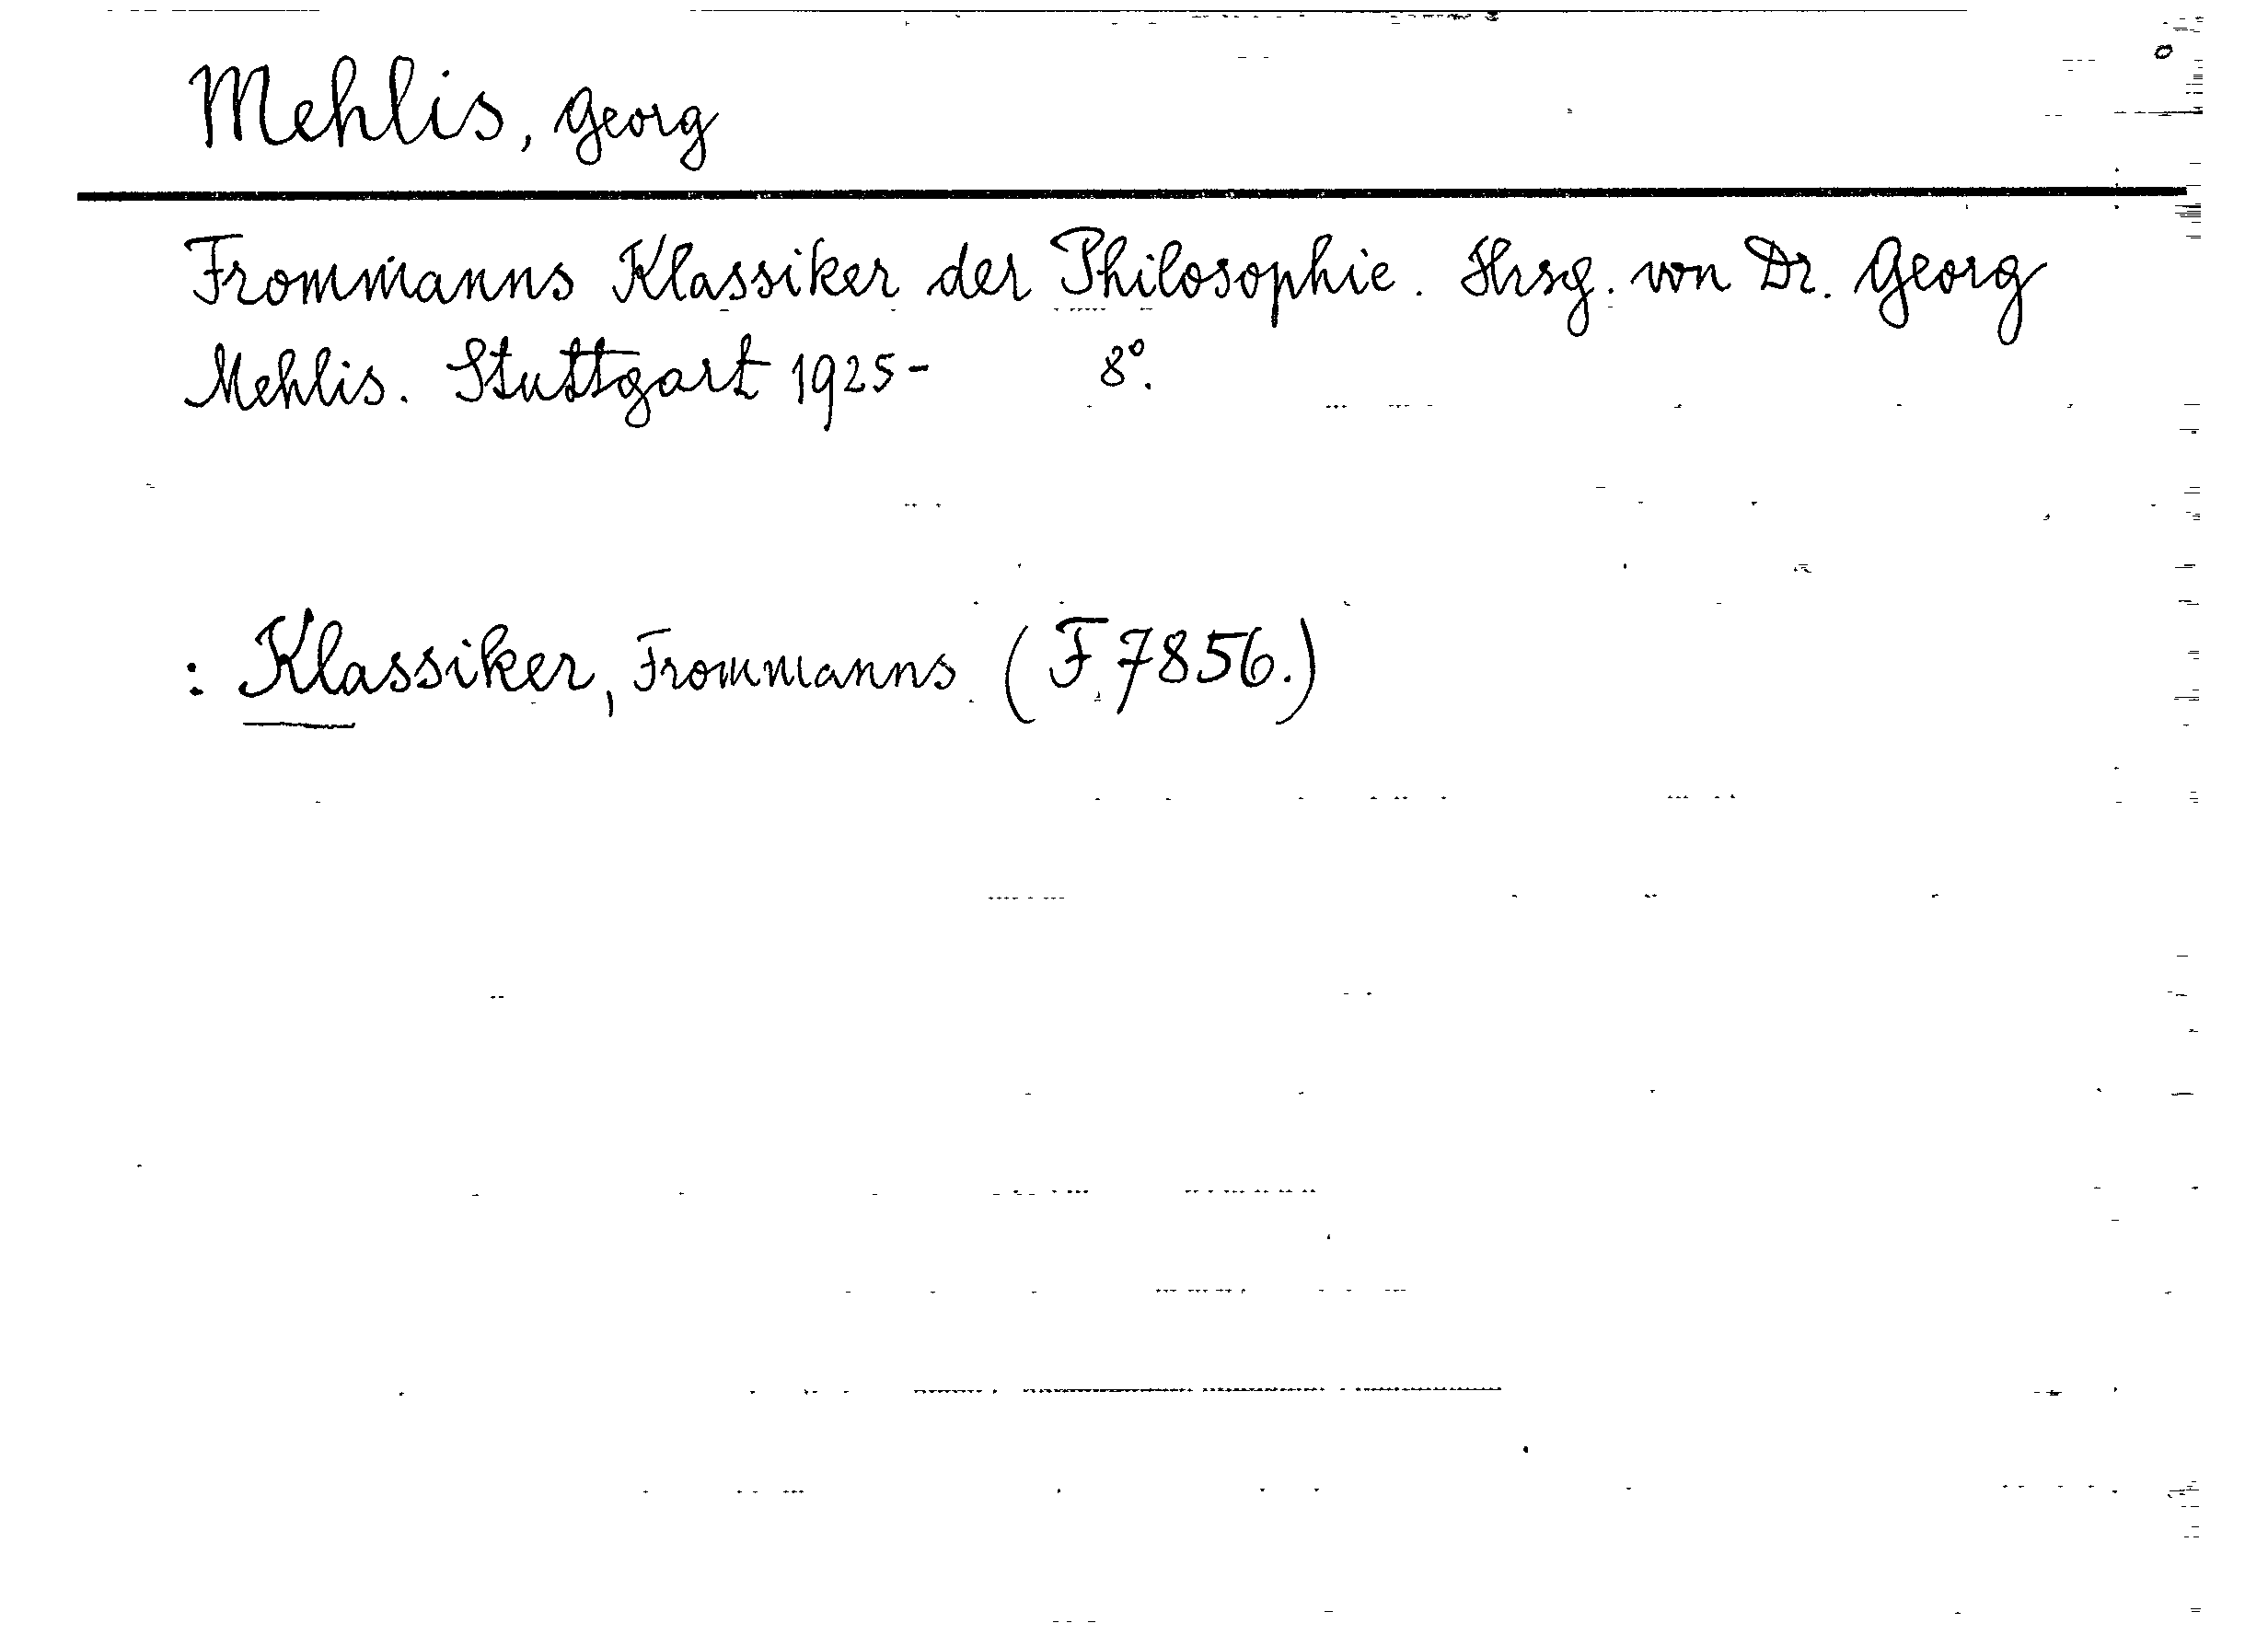 Mehlis, Georg
Frommanns Klassiker der Philosophie. Hrsg. von Dr. Georg
Mehlis. Stuttgart 1925- 8°.
: Klassiker, Frommanns. (F. 7856.)